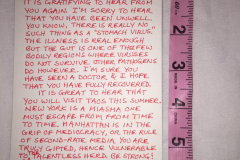 IT IS GRATIFYING TO HEAR FROM
YOU AGAIN. I'M SORRY TO HEAR
THAT YOU HAVE BEEN UNWELL.
YOU KNOW, THERE IS REALLY NO
SUCH THING AS A "STOMACH VIRUS."
THE ILLNESS IS REAL ENOUGH
BUT THE GUT IS ONE OF THE FEW
BODILY REGIONS WHERE VIRUSES
DO NOT SURVIVE. OTHER PATHOGENS
DO HOWEVER. I'M SURE YOU
HAVE SEEN A DOCTOR & I HOPE
THAT YOU HAVE FULLY RECOVERED.
IT IS GREAT TO HEAR THAT
YOU WILL VISIT TAOS THIS SUMMER.
NEW YORK IS A MIASMA ONE
MUST ESCAPE FROM, FROM TIME
TO TIME. MANHATTAN IS IN THE
GRIP OF MEDIOCRACY, OR THE RULE
OF SECOND-RATE MEDIA. YOU ARE
TRULY GIFTED, HENCE VULNERABLE
TO TALENTLESS HERD. BE STRONG!
2
3
4
5